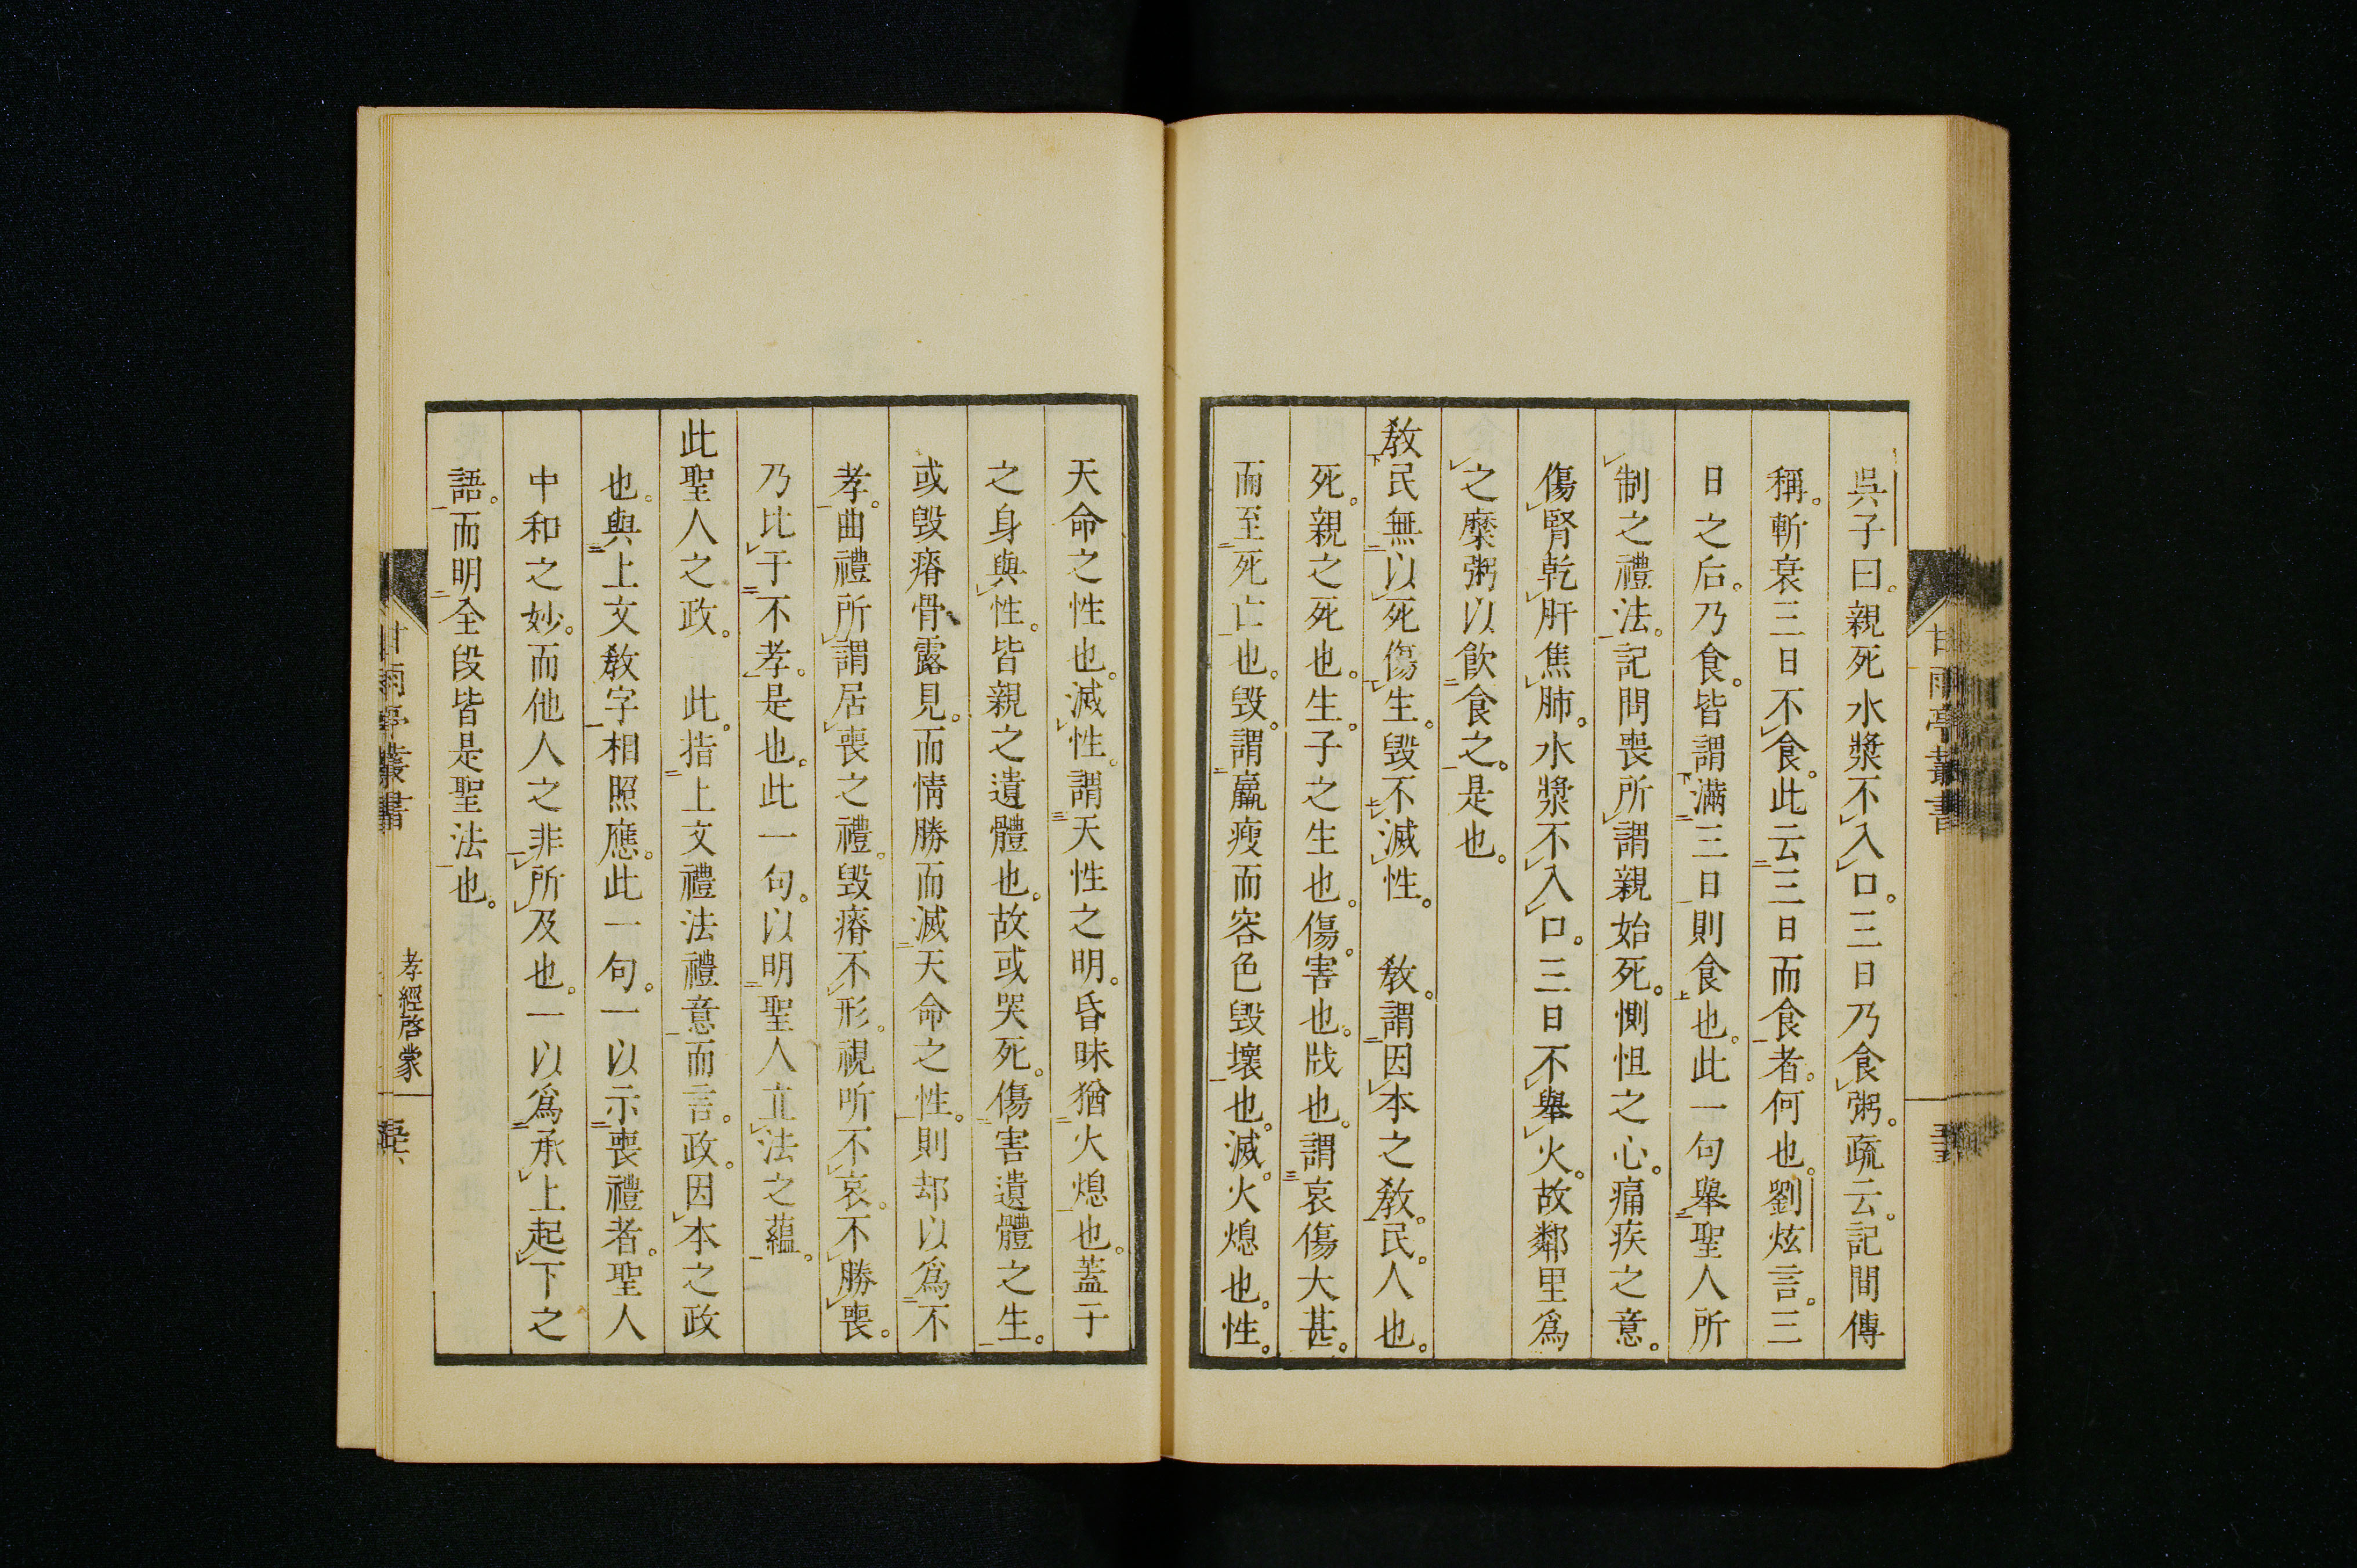 吳子曰。親死水漿不入口。三日乃食粥。疏云。記間傳
稱。斬衰三日不食。此云三日而食者。何也。劉炫言。三
日之后。乃食。皆謂滿三日則食也。此一句舉聖人所
制之禮法。記問喪所謂親始死。惻怛之心。痛疾之意。
傷腎乾肝焦肺。水漿不入口。三日不舉火。故鄰里爲
之糜粥以飮食之。是也。
教民無以死傷生。毀不滅性。 教。謂因本之教。民。人也。
死。親之死也。生。子之生也。傷。害也。戕也。謂哀傷大甚。
而至死亡也。毀。謂羸瘦而容色毀壞也。滅。火熄也。性。
天命之性也。滅性。謂天性之明。昏昧猶火熄也。蓋子
之身與性。皆親之遺體也。故或哭死。傷害遺體之生。
或毀瘠骨露見。而情勝而滅天命之性。則却以爲不
孝。曲禮所謂居喪之禮。毀瘠不形。視听不哀。不勝喪。
乃比于不孝。是也。此一句。以明聖人立法之蘊。
此聖人之政。 此。指上文禮法禮意而言。政。因本之政
也。與上文教字相照應。此一句。一以示喪禮者。聖人
中和之妙。而他人之非所及也。一以爲承上起下之
語。而明全段皆是聖法也。
甘雨亭叢書
甘雨亭叢書
孝經啓蒙